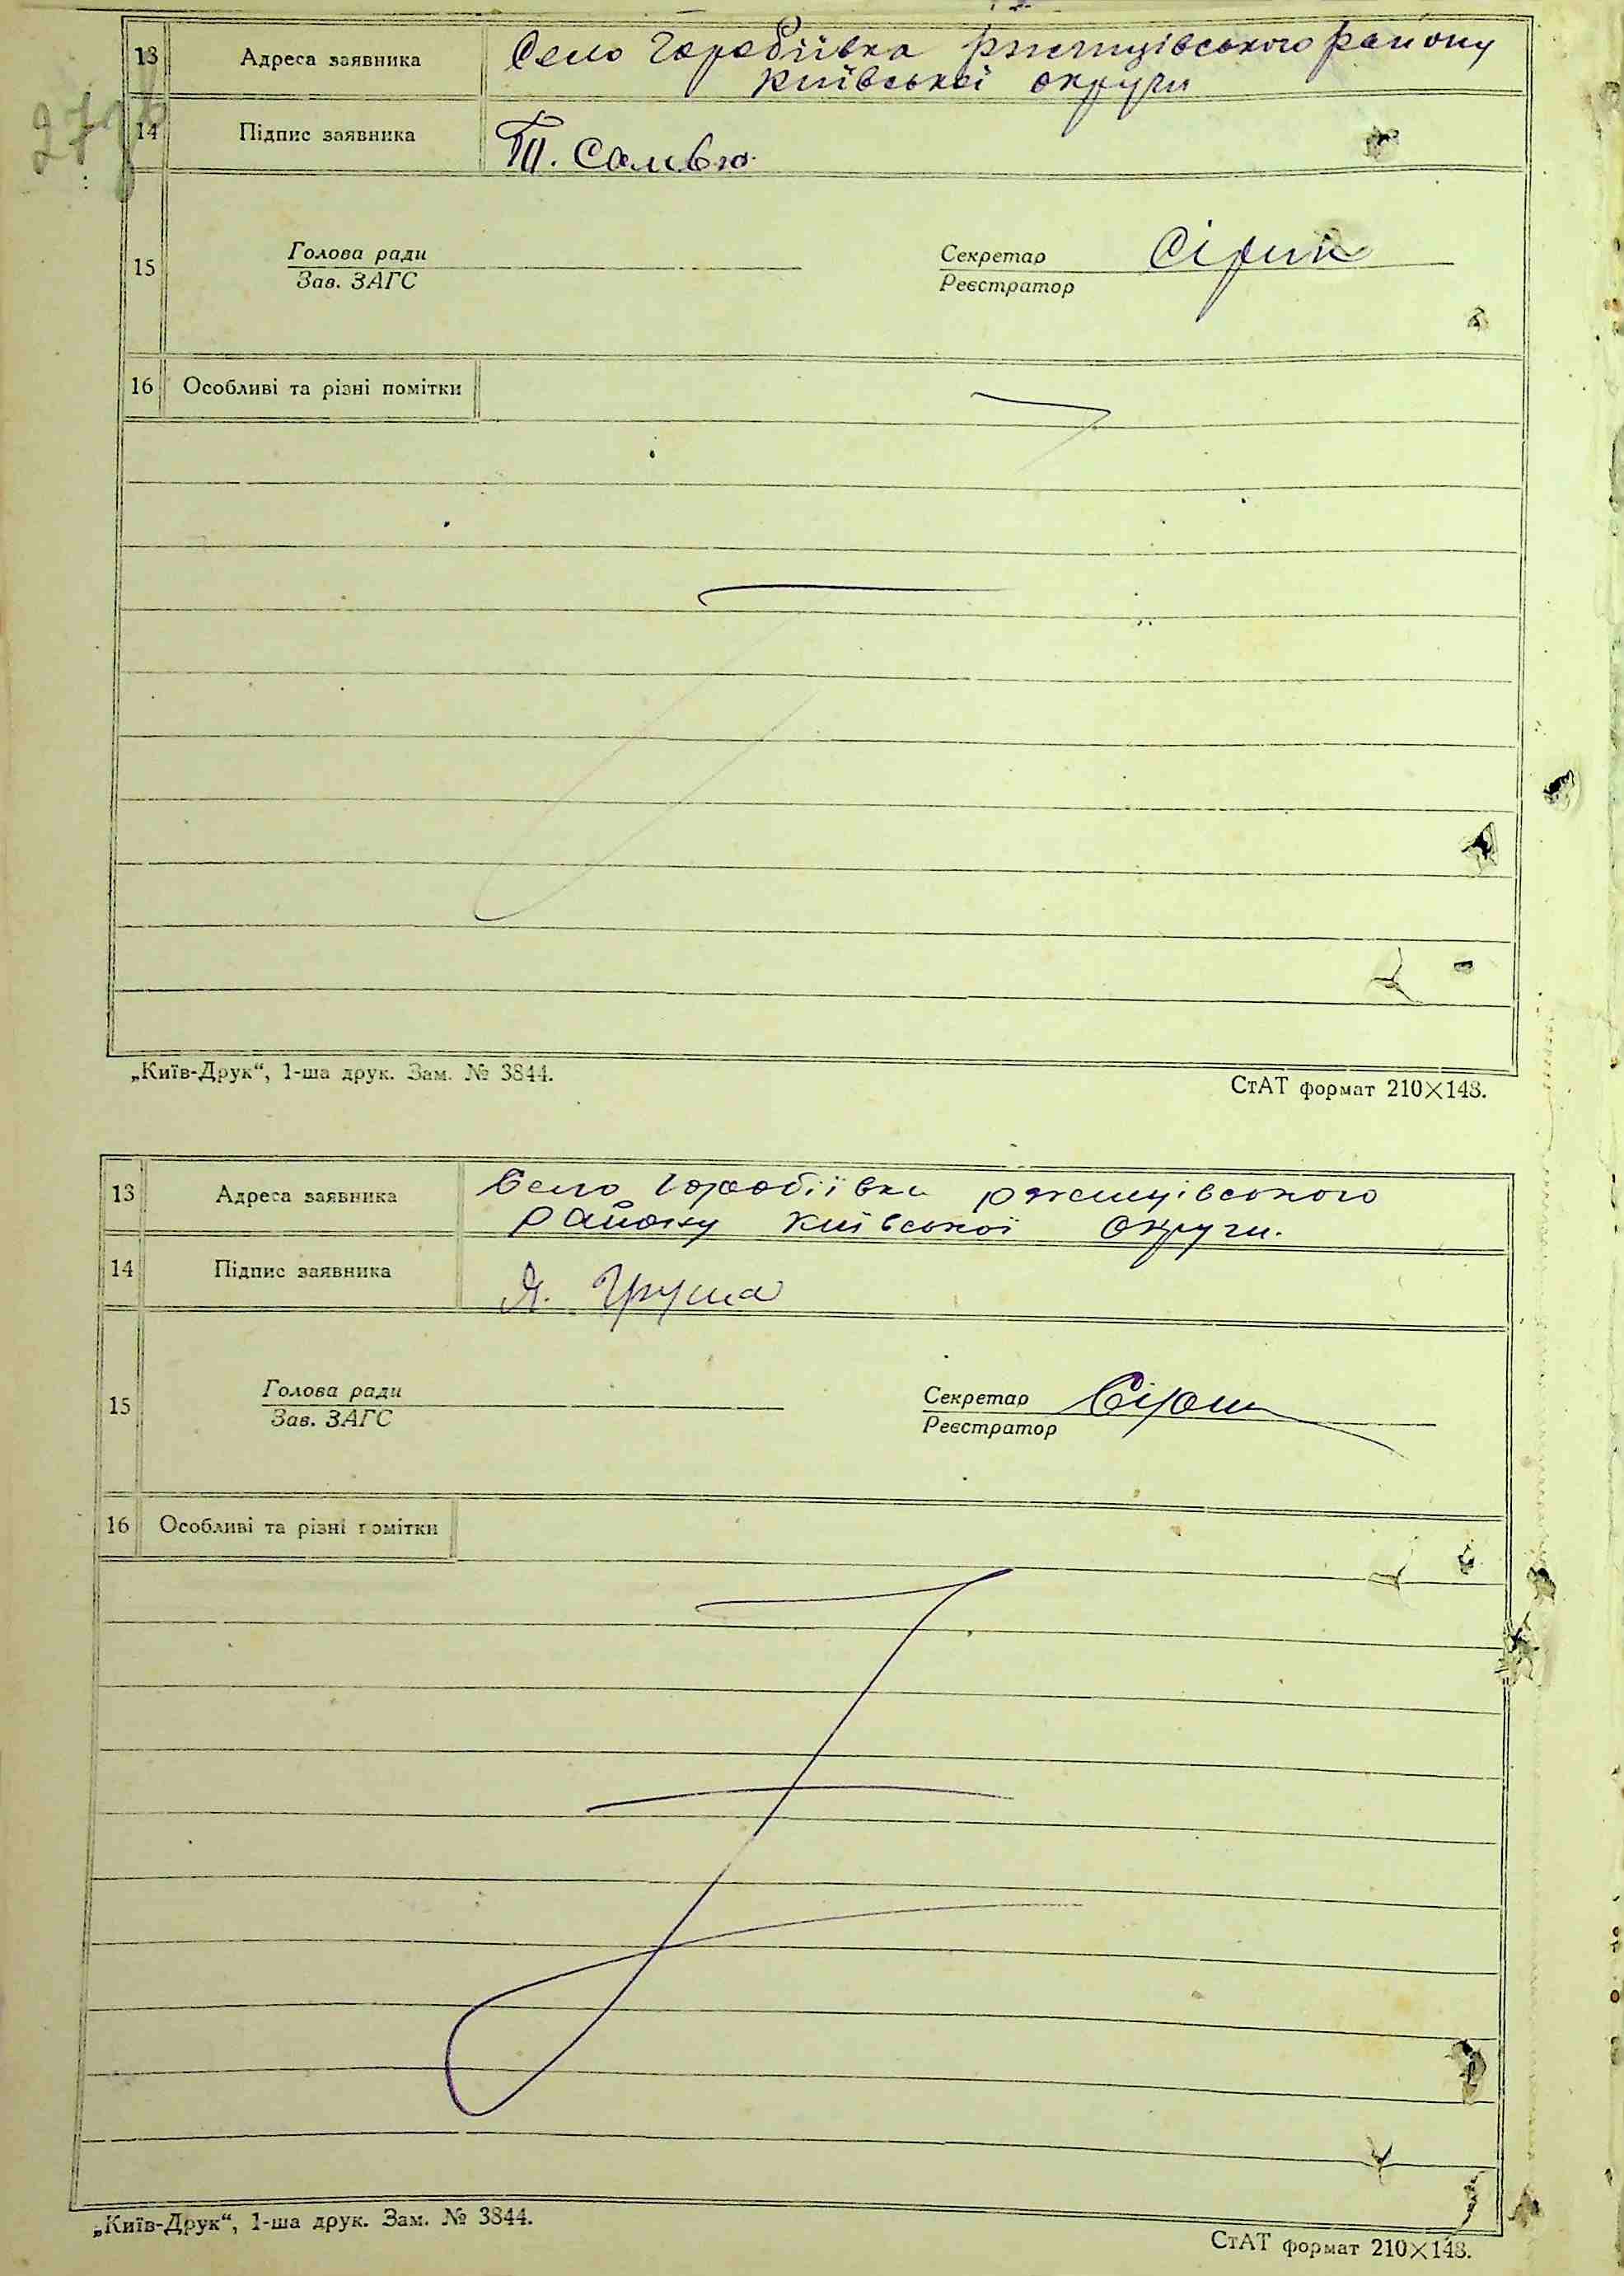 13 Адреса заявника Село Горобіївка Ржищівського району
Київської округи
14 Підпис заявника
15 Голова ради
Зав. ЗАГС
Секретар
Реєстратор
16 Особливі та різні помітки
„Київ-Друк“, 1-ша друк. Зам. № 3844.
СтАТ формат 210×148.
13 Адреса заявника Село Горобіївка ржищівського
району Київської округи.
14 Підпис заявника Я. Груша
15 Голова ради
Зав. ЗАГС
Секретар
Реєстратор
16 Особливі та різні помітки
„Київ-Друк“, 1-ша друк. Зам. № 3844.
СтАТ формат 210×148.